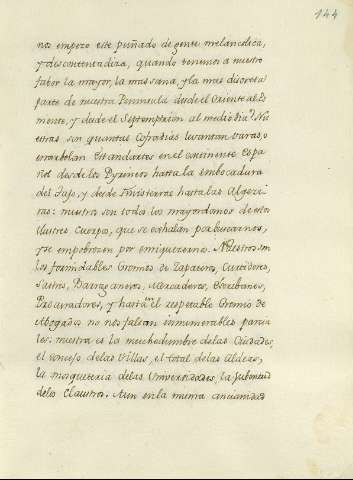 144
nos empezo este puñado de gente melancolica,
y descontentadiza, quando tenemos a nuestro
fabor la mayor, la mas sana, y la mas discreta
parte de nuestra Peninsula desde el Oriente al Po-
niente, y desde el Septemptrion al medio dia? Nu
estras son quantas Cofradias levantan Varas, o
enarbolan Estandartes en el continente Espa
ñol desde los Pyrineos hasta la embocadura
del Tajo, y desde Finisterrae hasta las Algezi-
ras: nuestros son todos los mayordomos de estos
ilustres Cuerpos, que se exhalan por buscarnos,
y se empobrezen por enriquezernos. Nuestros son
los formidables Gremios de Zapateros, Curtidores,
Sastres, Barraganeros, Mercaderes, Escribanos,
Procuradores, y hasta en el respetable Gremio de
Abogados no nos faltan innumerables parcia
les: nuestra es la muchedumbre de las Ciudades,
el concejo de las Villas, el total de las Aldeas,
la mosqueteria de las Universidades, la Jubentud
de los Claustros. Aun en la misma ancianidad